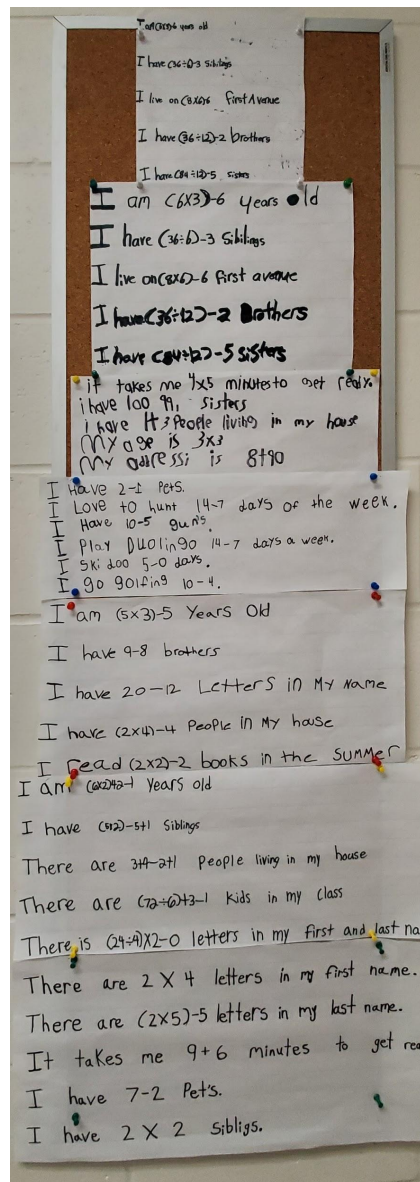 I am (6x3)-6 years old
I have (36÷6)-3 Sibilings
I live on (8x6)-6 first Avenue
I have (36÷12)-2 brothers
I have (84÷12)-5 sisters
I am (6x3)-6 years old
I have (36÷6)-3 Sibilings
I live on (8x6)-6 first avenue
I have (36÷12)-2 Brothers
I have (84÷12)-5 sisters
it takes me 4x5 minutes to get ready.
i have 100 99, sisters
i have 1+3 People living in my house
My age is 3x3
My adressi is 8+90
I Have 2-1 Pets.
I Love to hunt 14-7 days of the week.
I Have 10-5 guns.
I Play Duolingo 14-7 days a week.
I Skidoo 5-0 days.
I go golfing 10-4.
I am (5x3)-5 Years Old
I have 9-8 brothers
I have 20-12 Letters in My Name
I have (2x4)-4 People in My house
I read (2x2)-2 books in the Summer
I am (6x2)+2-1 Years old
I have -5+1 Siblings
There are 3+4-2+1 People living in my house
There are (72÷6)+3-1 kids in my class
There is (24÷4)X2-0 letters in my first and last na
There are 2 X 4 letters in my first name.
There are (2x5)-5 letters in my last name.
It takes me 9+6 minutes to get rea
I have 7-2 Pet's.
I have 2 X 2 Sibligs.